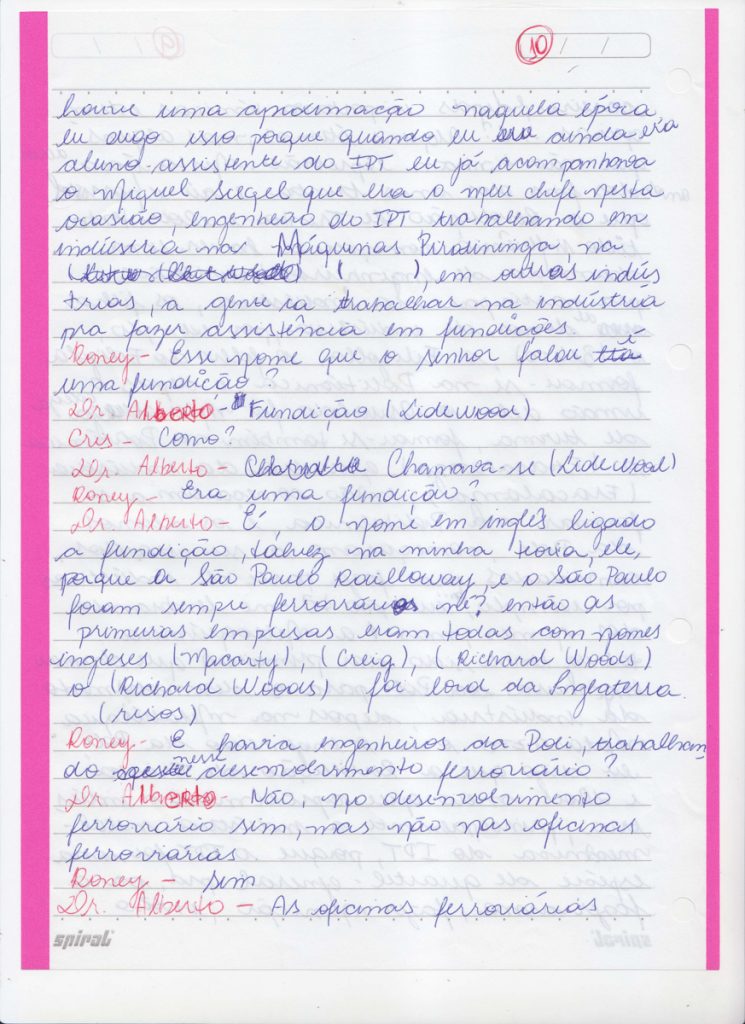 10
houve uma aproximação naquela época
eu digo isso porque quando eu era ainda era
aluno-assistente do IPT eu já acompanhava
o Miguel Siegel que era o meu chefe nesta
ocasião, engenheiro do IPT trabalhando em
indústria na Máquinas Piratininga, na
( ), em outras indús
trias, a gente ia trabalhar na indústria
pra fazer assistência em fundições.
Roney - Esse nome que o senhor falou é
uma fundição?
Dr. Alberto - Fundição (Lidewood)
Cris - Como?
Dr. Alberto - Chamava-se (Lidewood)
Roney - Era uma fundição?
Dr. Alberto - É, o nome em inglês ligado
a fundição, talvez na minha teoria, ele,
porque a São Paulo Railloway, e o São Paulo
foram sempre ferroviários né? então as
primeiras empresas eram todas com nomes
ingleses (Macarty), (Creig), (Richard Woods)
o (Richard Woods) foi lord da Inglaterra.
(risos)
Roney - E havia engenheiros da Poli, trabalhan-
do nesse desenvolvimento ferroviário?
Dr. Alberto - Não, no desenvolvimento
ferroviário sim, mas não nas oficinas
ferroviárias
Roney - Sim
Dr. Alberto - As oficinas ferroviárias
spiral